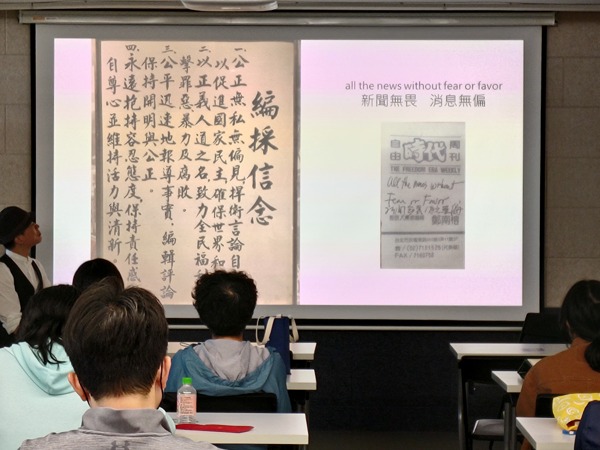 編採信念
一.公正無私無偏見捍衛言論自
以促進國家民主確保世界和
二.以正義人道之名致力全民福
擊罪惡暴力及腐敗。
三.公平迅速地報導事實,編輯評論
保持開明與公正。
四.永遠抱持容忍態度,保持責任感
自尊心並維持活力與清新。
all the news without fear or favor
新聞無畏 消息無偏
自由時代周刊
THE FREEDOM ERA WEEKLY
All the news without
Fear or Favor
鄭南榕